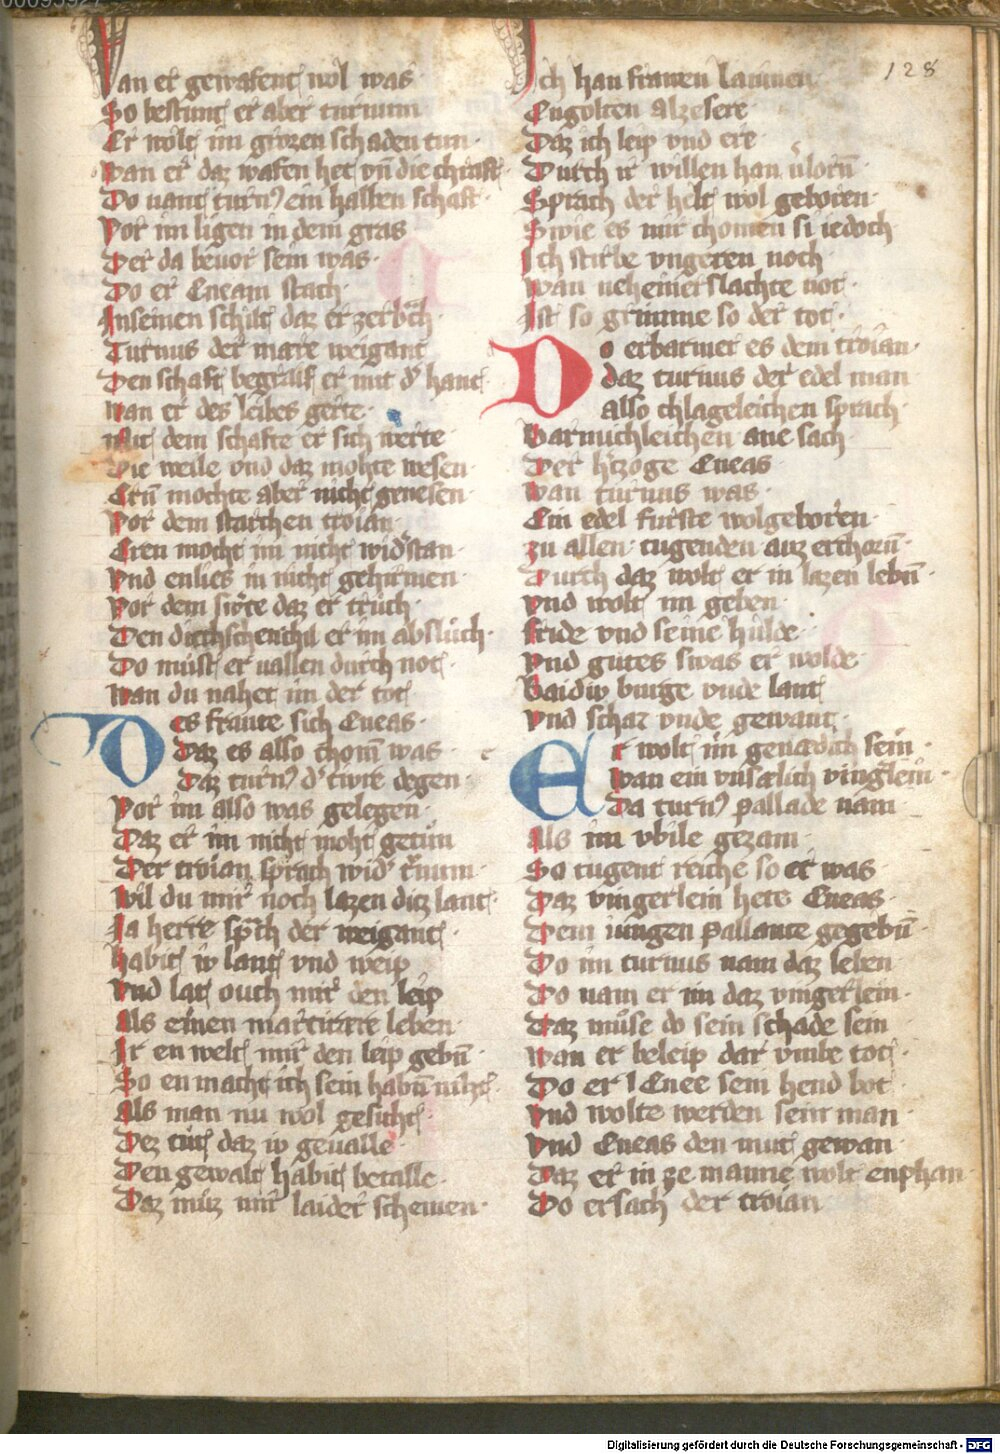 Wan er gewafent wol was
So bestunt er aber turnum
Er wolt im grozen schaden tun
Wan er daz wafen het vn̄ die chraft
Do uant turn9 ein halben schaft
Vor im ligen in dem gras
Der da beuor sein was
Do er Eneam stach
In seinen schilt daz er zerbͣch
Turnus der mare weigant
Den schaft begraif er mit d̕ hant
Wan er des leibes gerte
Mit dem schafte er sich werte
Die weile vnd daz mohte wesen
Ern̄ mochte aber nicht genesen
Vor dem starchen troian
Eren mocht im nicht wid̕stan
Vnd enlies in nicht gehirmen
Vor dem swͤrte daz er trůch
Den diechschenchil er im absluch
Do must er uallen durch not
Wan du nahet im der tot
Des fraute sich Eneas
Daz es also chom̄ was
Daz turn9 d̕ twre degen
Vor im also was gelegen
Daz er im nicht moht getun
Der troian sprach wid̕ t̕num
Wil du mir noch lazen ditz lant
Ia herre spͣch der weigant
Habit iv lant vnd weip
Vnd lat ouch mir den leip
Als einen martirare leben
Ir en welt mir den leip gebn̄
So en macht ich sein habn̄ niht
Als man nu wol gesicht
Dez tut daz iv geualle
Den gewalt habit betalle
Daz muz mir laider scheinen
Ich han frawen lauinen
Engolten alzesere
Daz ich leip vnd ere
Durch ir willen han ůlorn̄
Sprach der helt wol geboren
Swie es mir chomen si iedoch
Ich stirbe vngeren noch
Wan neheiner slachte not
Ist so grimme so der tot
Do erbarmet es dem troian
daz turnus der edel man
also chlageleichen sprach
Barmchleichen ane sach
Der h̕tzoge Eneas
Wan turnus was
Ein edel furste wolgeboren
Zu allen tugenden auz erchorn̄
Durch daz wolt er in lazen lebn̄
Vnd wolt im geben
fride vnd seine hulde
Vnd gutes swas er wolde
Baidiv burge vnde lant
Vnd schaz vnde gewant
Er wolt im genædich sein
Wan ein vnsælich ving̕lein
Da turn9 pallade nam
Als im vbile gezam
So tugent reiche so er was
Daz vingerlein hete Eneas
Dem iungen pallante gegebn̄
Do im turnus nam daz leben
Do nam er im daz vingerlein
Daz můse do sein schade sein
Wan er beleip dar vmbe tot
Do er Enee sein hend bot
Vnd wolte werden sein man
Vnd Eneas den mut gewan
Daz er in ze manne wolt enphan
Do ersach der troian
128
Digitalisierung gefördert durch die Deutsche Forschungsgemeinschaft - DFG